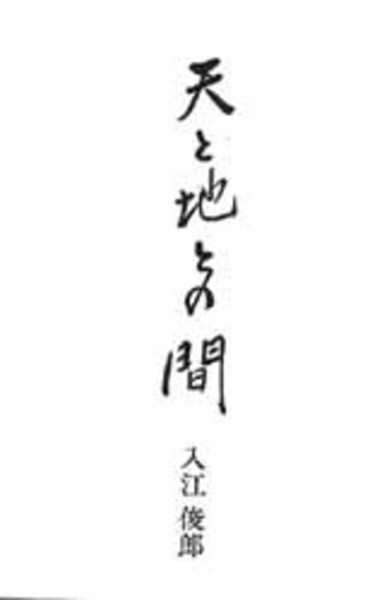 天と地との間
入江俊郎